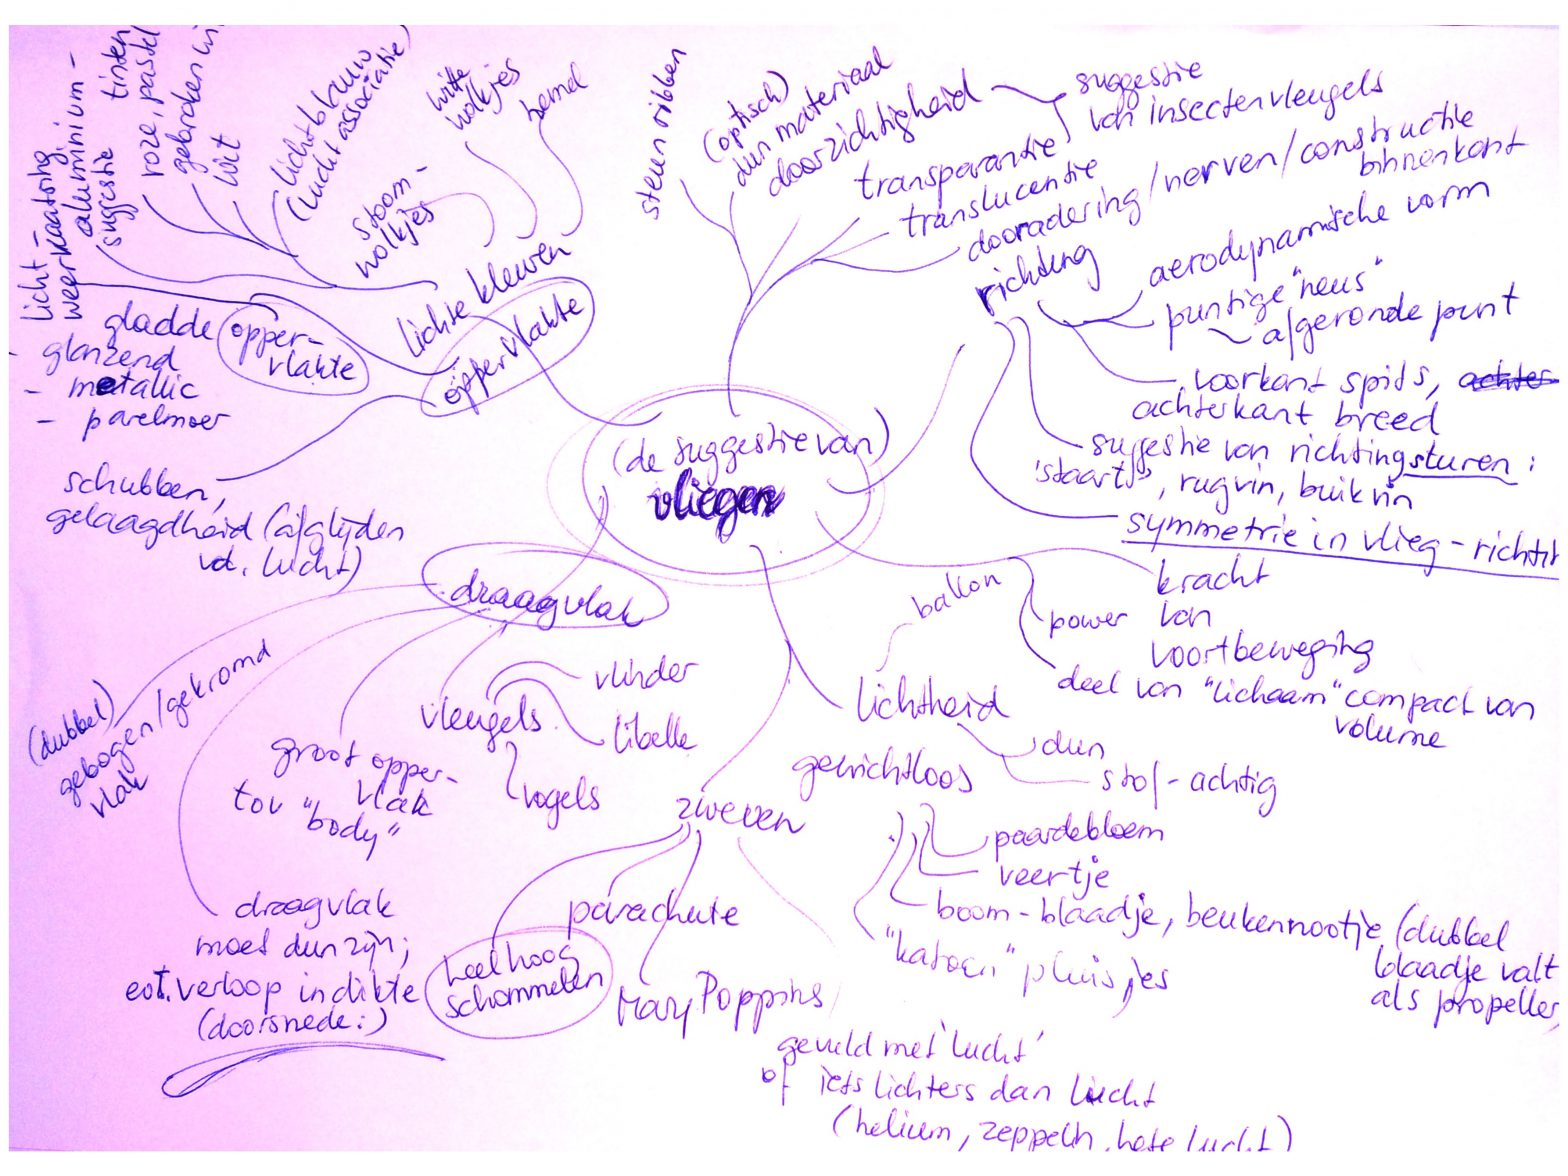 (de suggestie van)
vliegen
licht-
weerkaatsing
aluminium-
suggestie
tinten
roze, pastel
gebroken
wit
lichtblauw
(lucht associatie)
stoom-
wolkjes
witte
wolkjes
hemel
lichte kleuren
oppervlakte
opper-
vlakte
gladde
- glanzend
- metallic
- parelmoer
schubben,
gelaagdheid (afglijden
vd. lucht)
steunribben
(optisch)
dun materiaal
doorzichtigheid
suggestie
van insectenvleugels
transparantie
translucentie
dooradering/nerven/constructie
binnenkant
richting
aerodynamische vorm
puntige "neus"
afgeronde punt
voorkant spits, achter
achterkant breed
suggestie van richtingsturen:
'staart', rugvin, buikvin
symmetrie in vlieg-richt
kracht
power van
voortbeweging
deel van "lichaam" compact van
volume
draagvlak
(dubbel)
gebogen/gekromd
vlak
groot opper-
vlak
tov "body"
vleugels
vlinder
libelle
vogels
draagvlak
moet dun zijn;
evt. verloop in dikte
(doorsnede:)
balkon
lichtheid
dun
stof-achtig
gewichtloos
paardebloem
veertje
boom-blaadje, beukennootje (dubbel
blaadje valt
als propeller,
"katoen" pluisjes
zweven
parachute
heel hoog
schommelen
Mary Poppins
gevuld met 'lucht'
of iets lichters dan lucht
(helium, zeppelin, hete lucht)